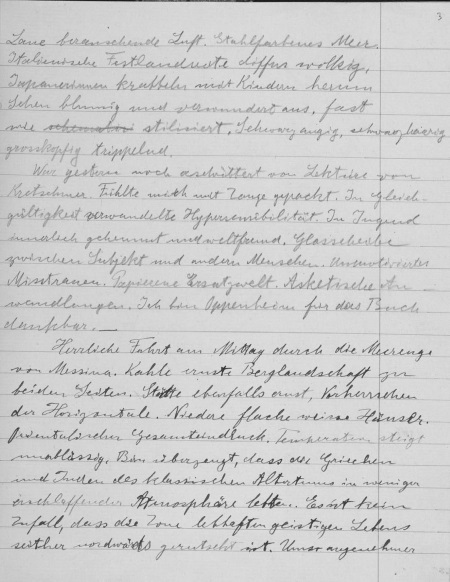 3
Laue berauschende Luft. Stahlfarbenes Meer.
Italienische Festlandküste diffus wolkig.
Japanerinnen krabbeln mit Kindern herum
Sehen blumig und verwundert aus, fast
wie stilisiert, Schwarzäugig, schwarzhaarig
grossköpfig trippelnd.
War gestern noch erschüttert von Lektüre von
Kretschmer. Fühlte mich wie mit Zange gepackt. In Gleich-
gültigkeit verwandelte Hypersensibilität. In Jugend
innerlich gehemmt und weltfremd. Glasscheibe
zwischen Subjekt und andern Menschen. Unmotiviertes
Misstrauen. Papierene Ersatzwelt. Asketische An-
wandlungen. Ich bin Oppenheim für das Buch
dankbar. —
Herrliche Fahrt am Mittag durch die Meerenge
von Messina. Kahle ernste Berglandschaft zu
beiden Seiten. Städte ebenfalls ernst, Vorherrschen
der Horizontale. Niedere flache weisse Häuser.
Orientalischer Gesamteindruck. Temperatur steigt
unablässig. Bin überzeugt, dass die Griechen
und Juden des klassischen Altertums in weniger
erschlaffender Atmosphäre lebten. Es ist kein
Zufall, dass die Zone lebhaften geistigen Lebens
seither nordwärts gerutscht ist. Unser angenehmer